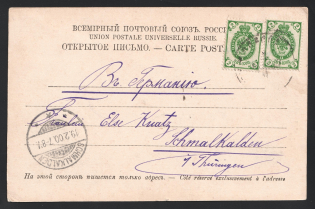 ВСЕМІРНЫЙ ПОЧТОВЫЙ СОЮЗЪ. РОССІ
UNION POSTALE UNIVERSELLE RUSSIE.
ОТКРЫТОЕ ПИСЬМО. — CARTE POST
Въ Германію.
Fräulein
Else Kuntz
Schmalkalden
i/Thüringen
SCHMALKALDEN
19.2.00.7-8
На этой сторонѣ пишется только адресъ. — Côté réservé exclusivement à l'adresse